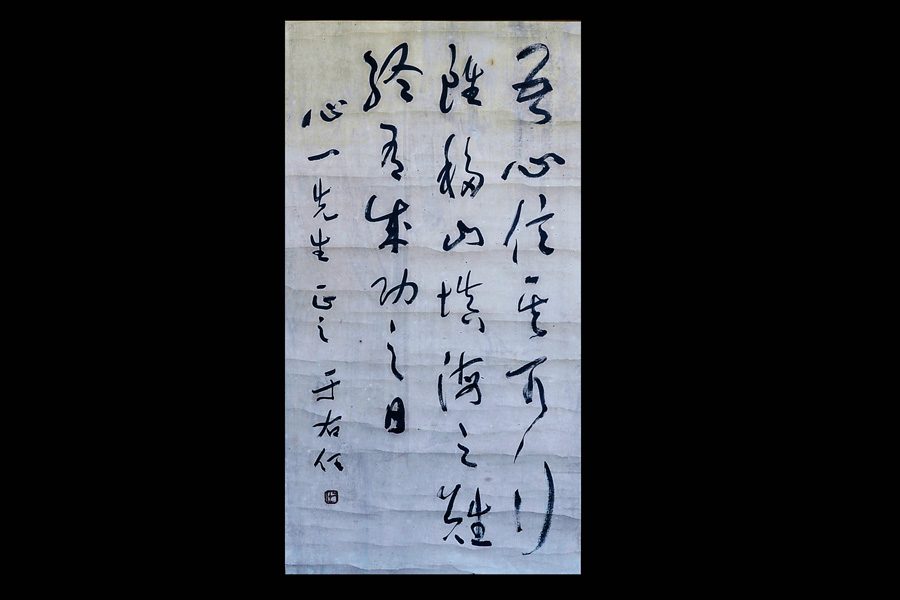 吾心信其可行
雖移山填海之難
終有成功之日
心一先生 正之 于右任